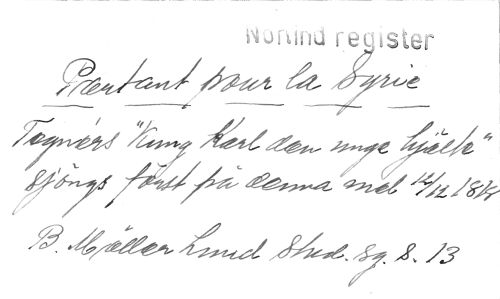 Norlind register
Partant pour la Syrie
Tegnérs "Kung Karl den unge hjälte"
sjöngs först på denna mel 12/12 1818
B. Möller Lund Stud. sg. s. 13